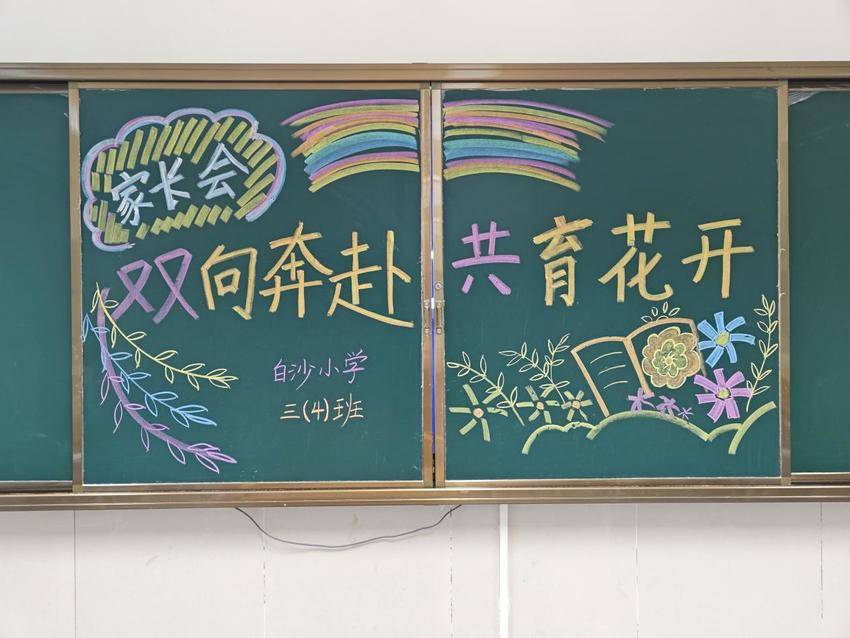 家长会
双向奔赴 共育花开
白沙小学
三(4)班